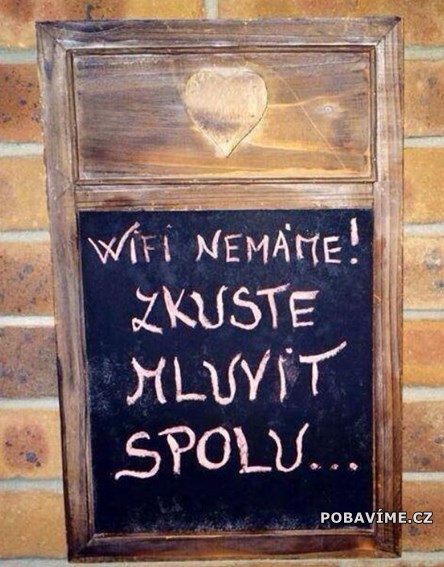 WIFI NEMÁME!
ZKUSTE
MLUVIT
SPOLU...
POBAVÍME.CZ